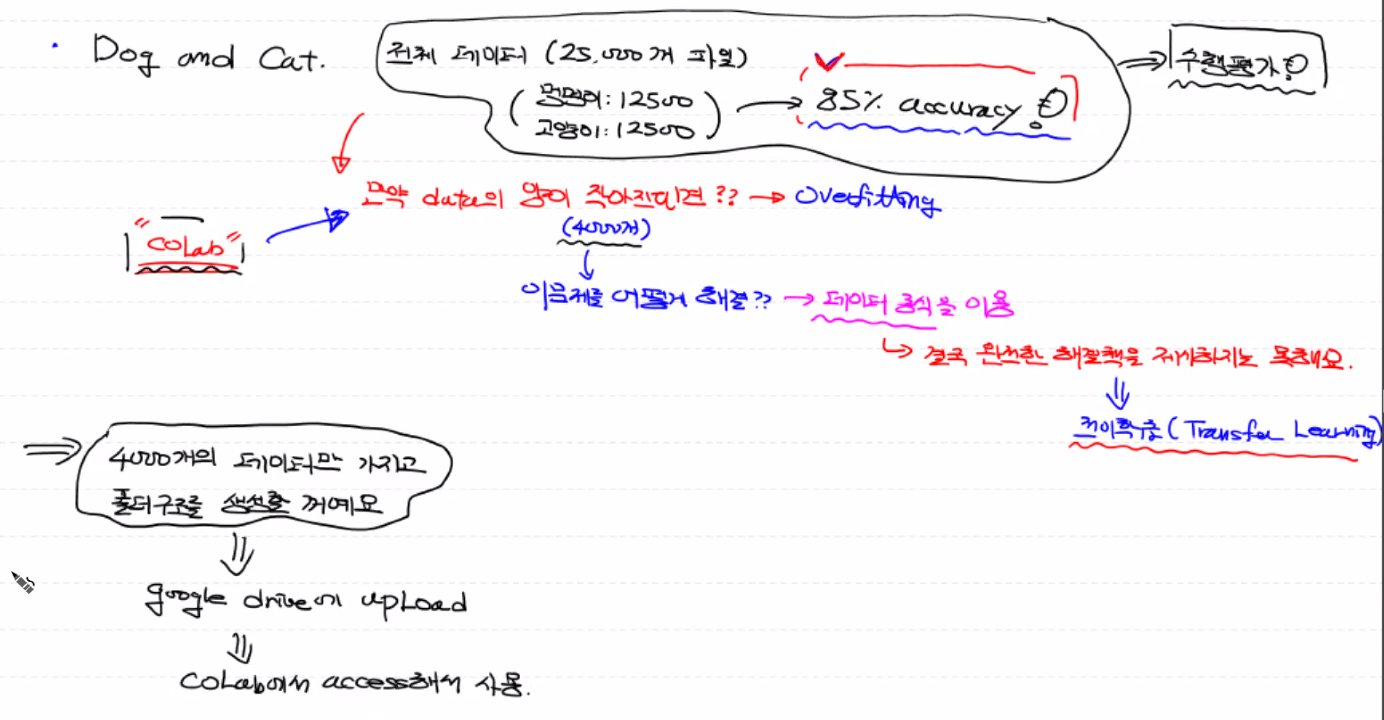 · Dog and Cat.
전체 데이터 (25,000개 파일)
(멍멍이: 12500
고양이: 12500)
→ 85% accuracy
⇒ 수행평가
만약 data의 양이 작아지면 ?? → Overfitting
(4000개)
"CoLab"
이문제를 어떻게 해결?? → 데이터 증식을 이용
↳ 결국 완전한 해결책을 제시하지는 못해요.
⇓
전이학습 (Transfer Learning)
⇒ 4000개의 데이터만 가지고
폴더구조를 생성할 꺼예요
⇓
google drive에 upLoad
⇓
CoLab에서 access해서 사용.